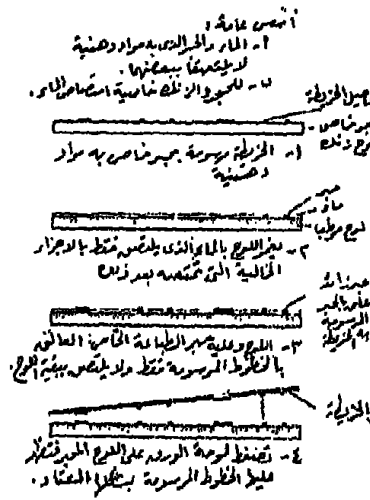 أسس عامة :
١- الماء والحبر الذى به مواد دهنية
لا يلتصقا ببعضهما.
٢- للحجر والزنك خاصية امتصاص الماء.
الخريطة
حبر خاص
١- الخريطة مرسومة بحبر خاص به مواد
دهنية
حبر
ماء
لوح مرطب
٢- يغمر اللوح بالماء الذى يلتصق فقط بالاجزاء
الخالية التى تمتصه بعد ذلك
المرسومة
به الخريطة
٣- اللوح وعليه حبر الطباعة الخاص العالق
بالخطوط المرسومة فقط ولا يلتصق ببقية اللوح.
٤- تضغط لوحة الورق على اللوح المحبر فتظهر
عليها الخطوط المرسومة بشكلها المعتاد.